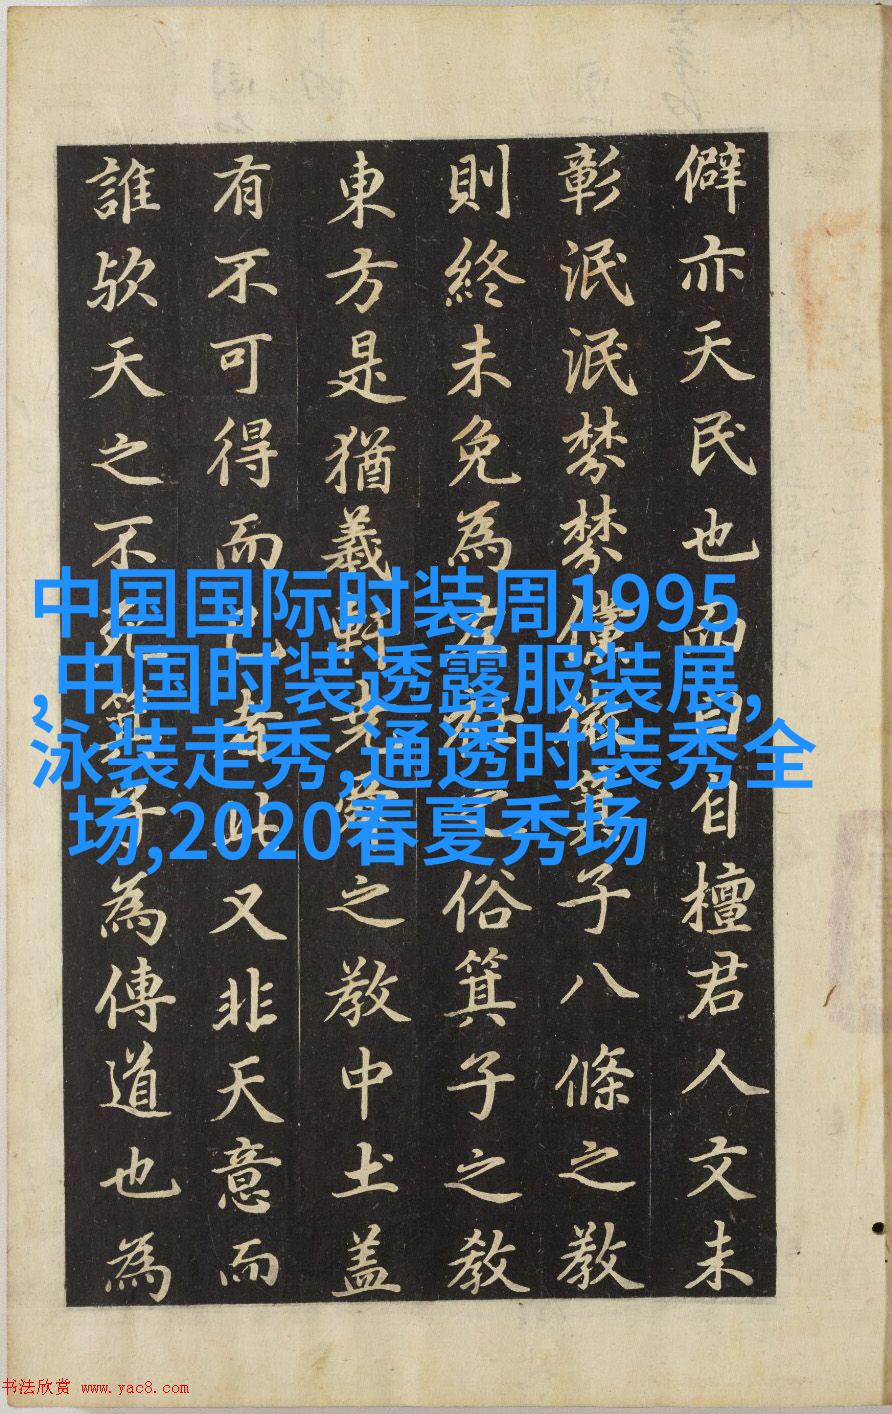 僻亦天民也而自檀君人文未
彰泯泯棼棼箕子八條之教
則終未免為之俗箕子之教
東方是猶羲軒之教中土盖
有不可得而已者此又非天意而
誰欤天之不死箕子為傳道也為
中国国际时装周1995
,中国时装透露服装展,
泳装走秀,通透时装秀全
场,2020春夏秀场
书法欣赏 www.yac8.com